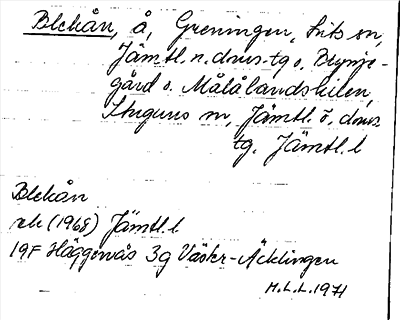 Blekån, å, Greningen, Lits sn,
Jämtl. n. dnrs-tg o. Brynje-
gård o. Målålandskilen,
Stuguns sn, Jämtl. ö. doms
tg. Jämtl. l
Blekån
rek (1968) Jämtl. l
19F Häggenås 3g Väster-Äcklingen
M.L.L. 1971